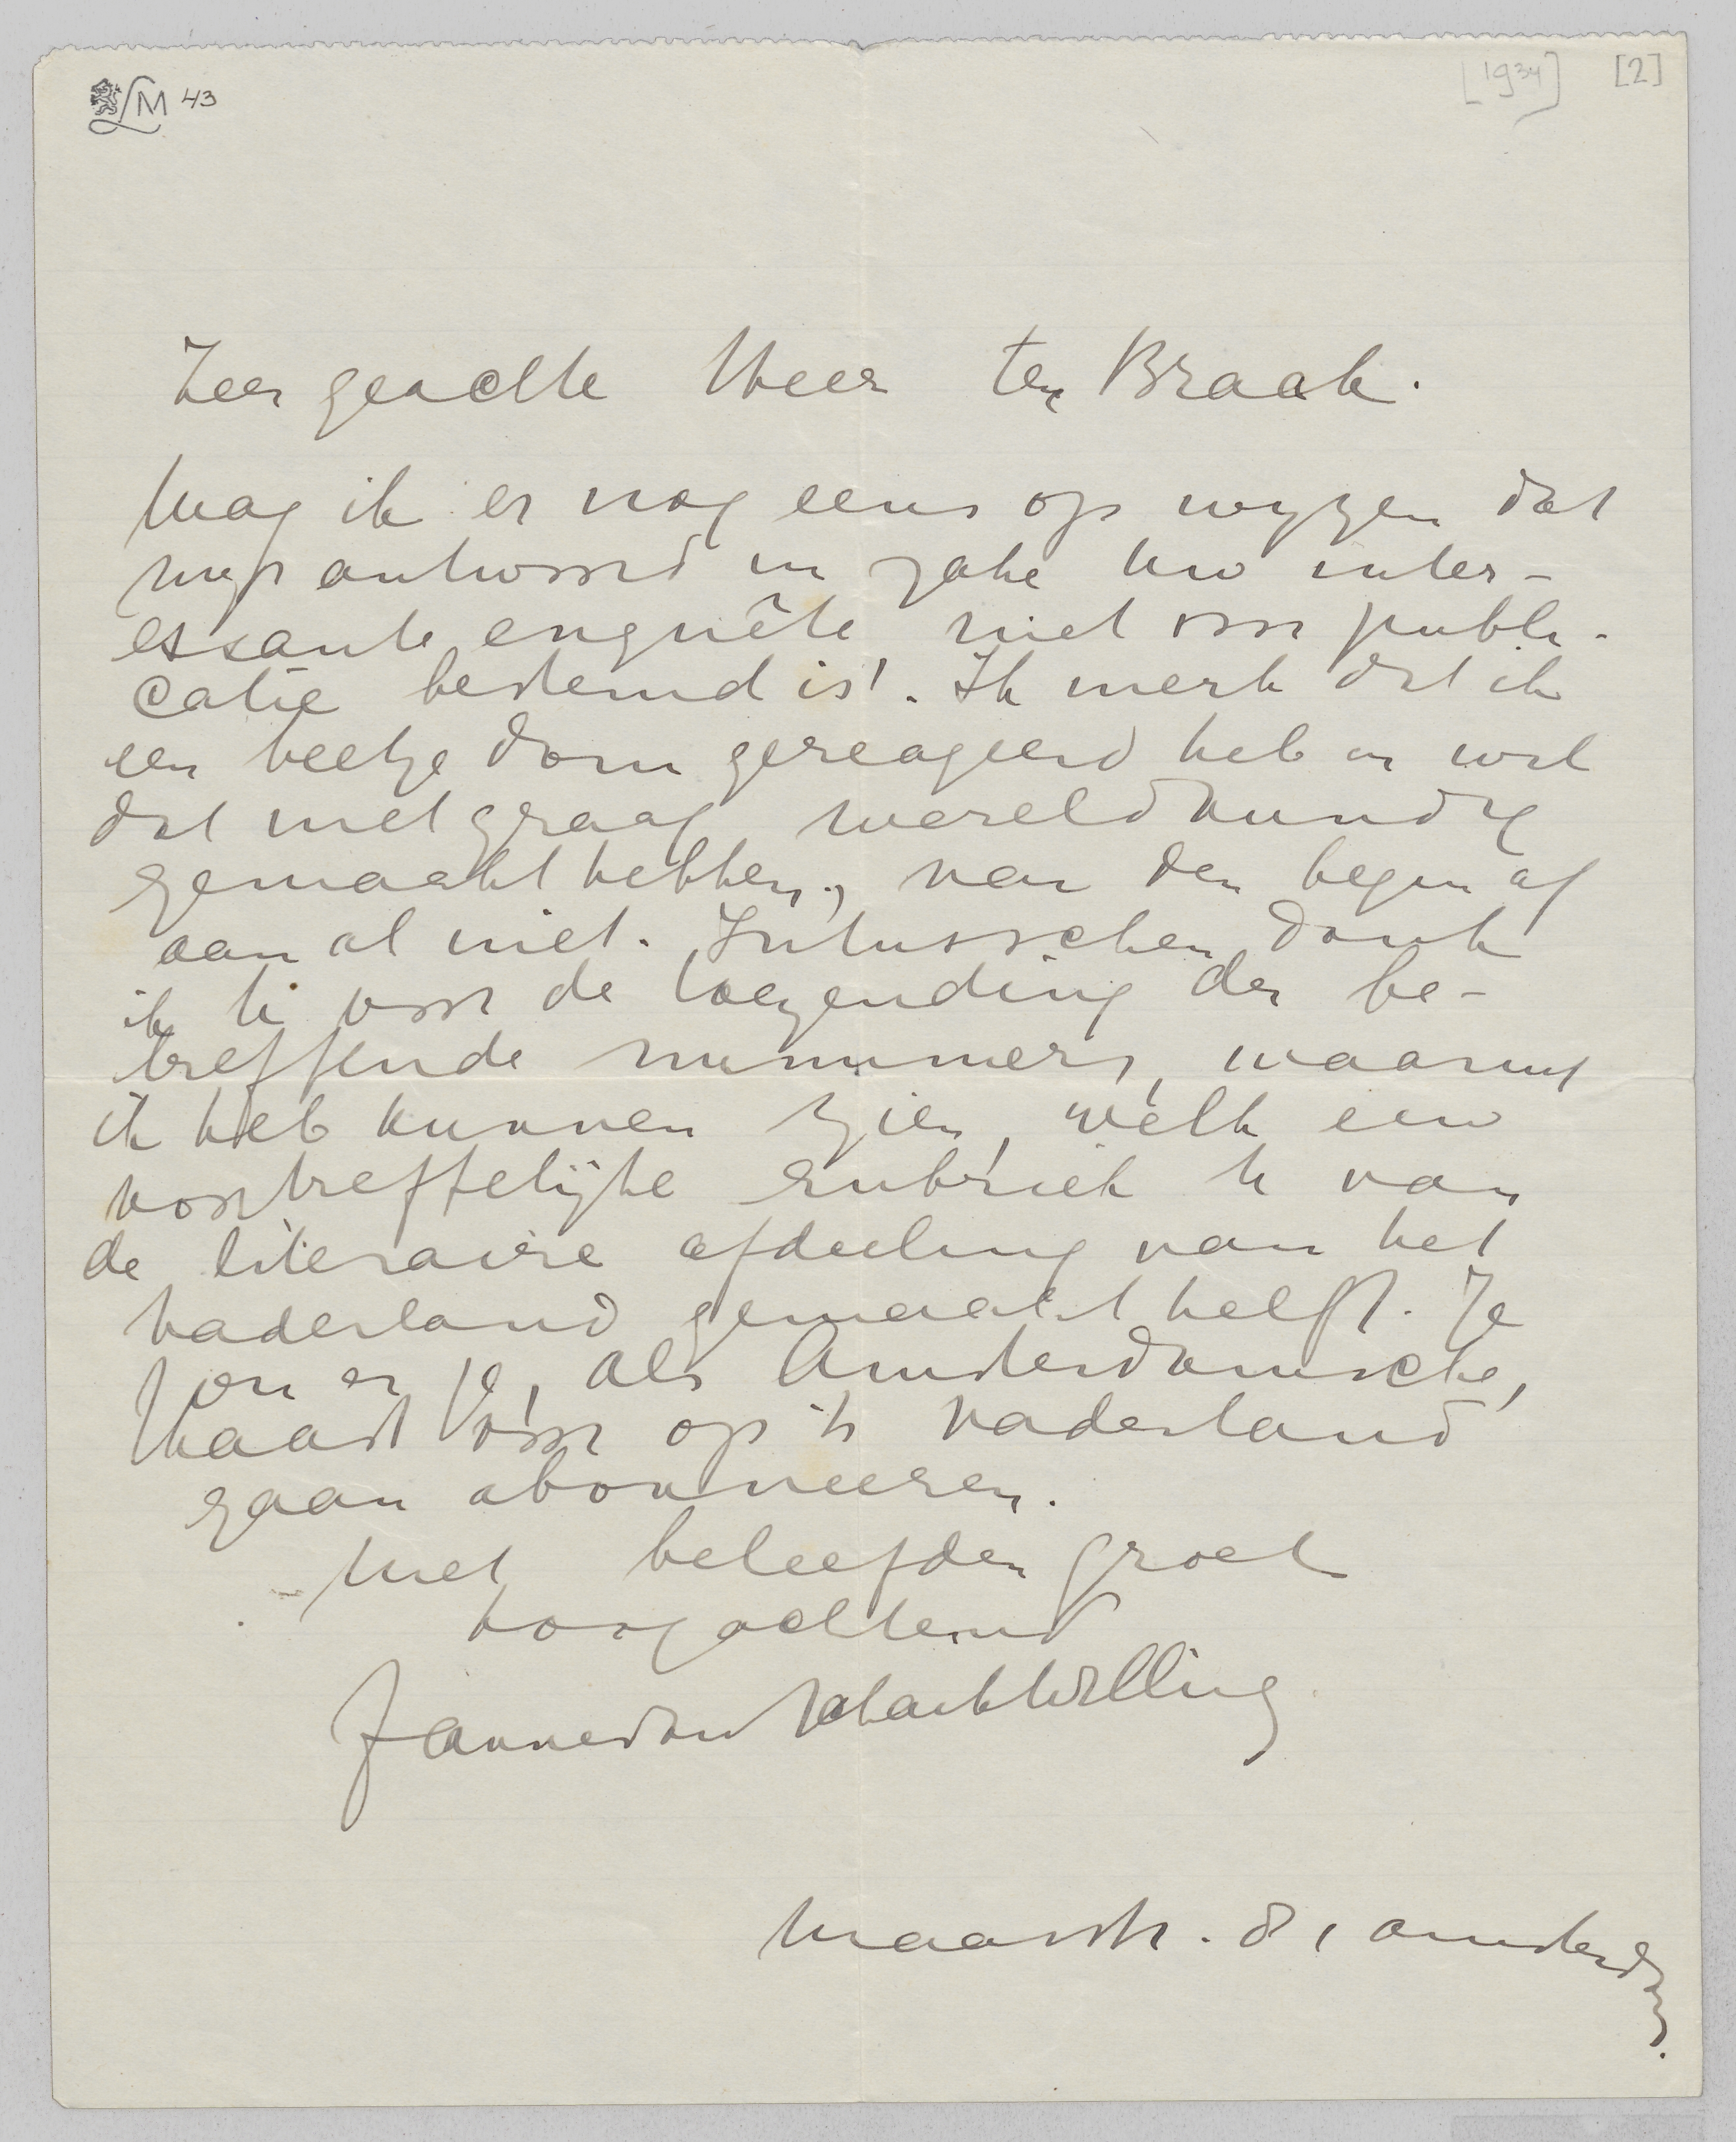 LM 43 [1934] [2]
Zeer geachte Heer ter Braak.
Mag ik er nog eens op wyzen dat
myn antwoord in zake Uw inter-
essante enquête niet voor publi-
catie bestemd is!. Ik merk dat ik
een beetje dom gereageerd heb en wil
dat niet graag wereldkundig
gemaakt hebben, van den begin af
aan al niet. Intusschen dank
ik U voor de toezending der be-
treffende nummers, waaruit
ik heb kunnen zien, wèlk een
voortreffelijke rubriek U van
de literaire afdeeling van het
Vaderland gemaakt heeft. Je
zou er je, als Amsterdamsche,
haast vóór op 't Vaderland
gaan abonneeren.
Met beleefden groet
hoogachtend
Maasstr. 8, Amsterdam.